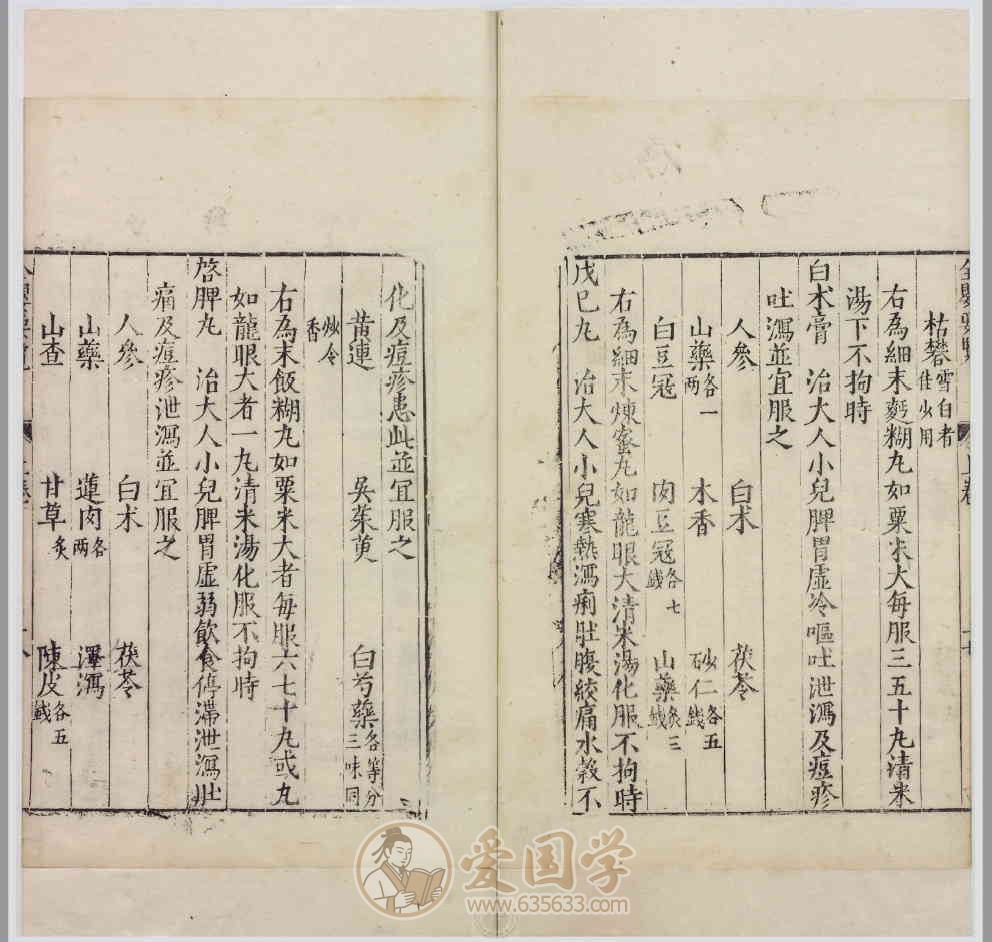 枯礬雪白者佳少用
右為細末麪糊丸如粟米大每服三五十丸清米
湯下不拘時
白术膏　治大人小兒脾胃虛冷嘔吐泄瀉及痘疹
吐瀉並宜服之
人參　白术　茯苓
山藥各一两　木香　砂仁各五錢
白豆冦　肉豆冦各七錢　山藥炙三錢
右為細末煉蜜丸如龍眼大清米湯化服不拘時
戊巳丸　治大人小兒寒熱瀉痢肚腹絞痛水穀不
化及痘疹患此並宜服之
黄連　吳茱萸　白芍藥各等分三味同
炒令香
右為末飯糊丸如粟米大者每服六七十丸或丸
如龍眼大者一丸清米湯化服不拘時
啓脾丸　治大人小兒脾胃虛弱飲食停滯泄瀉肚
痛及痘疹泄瀉並宜服之
人參　白术　茯苓
山藥　蓮肉各两　澤瀉
山查　甘草炙　陳皮各五錢
爱国学
www.635633.com